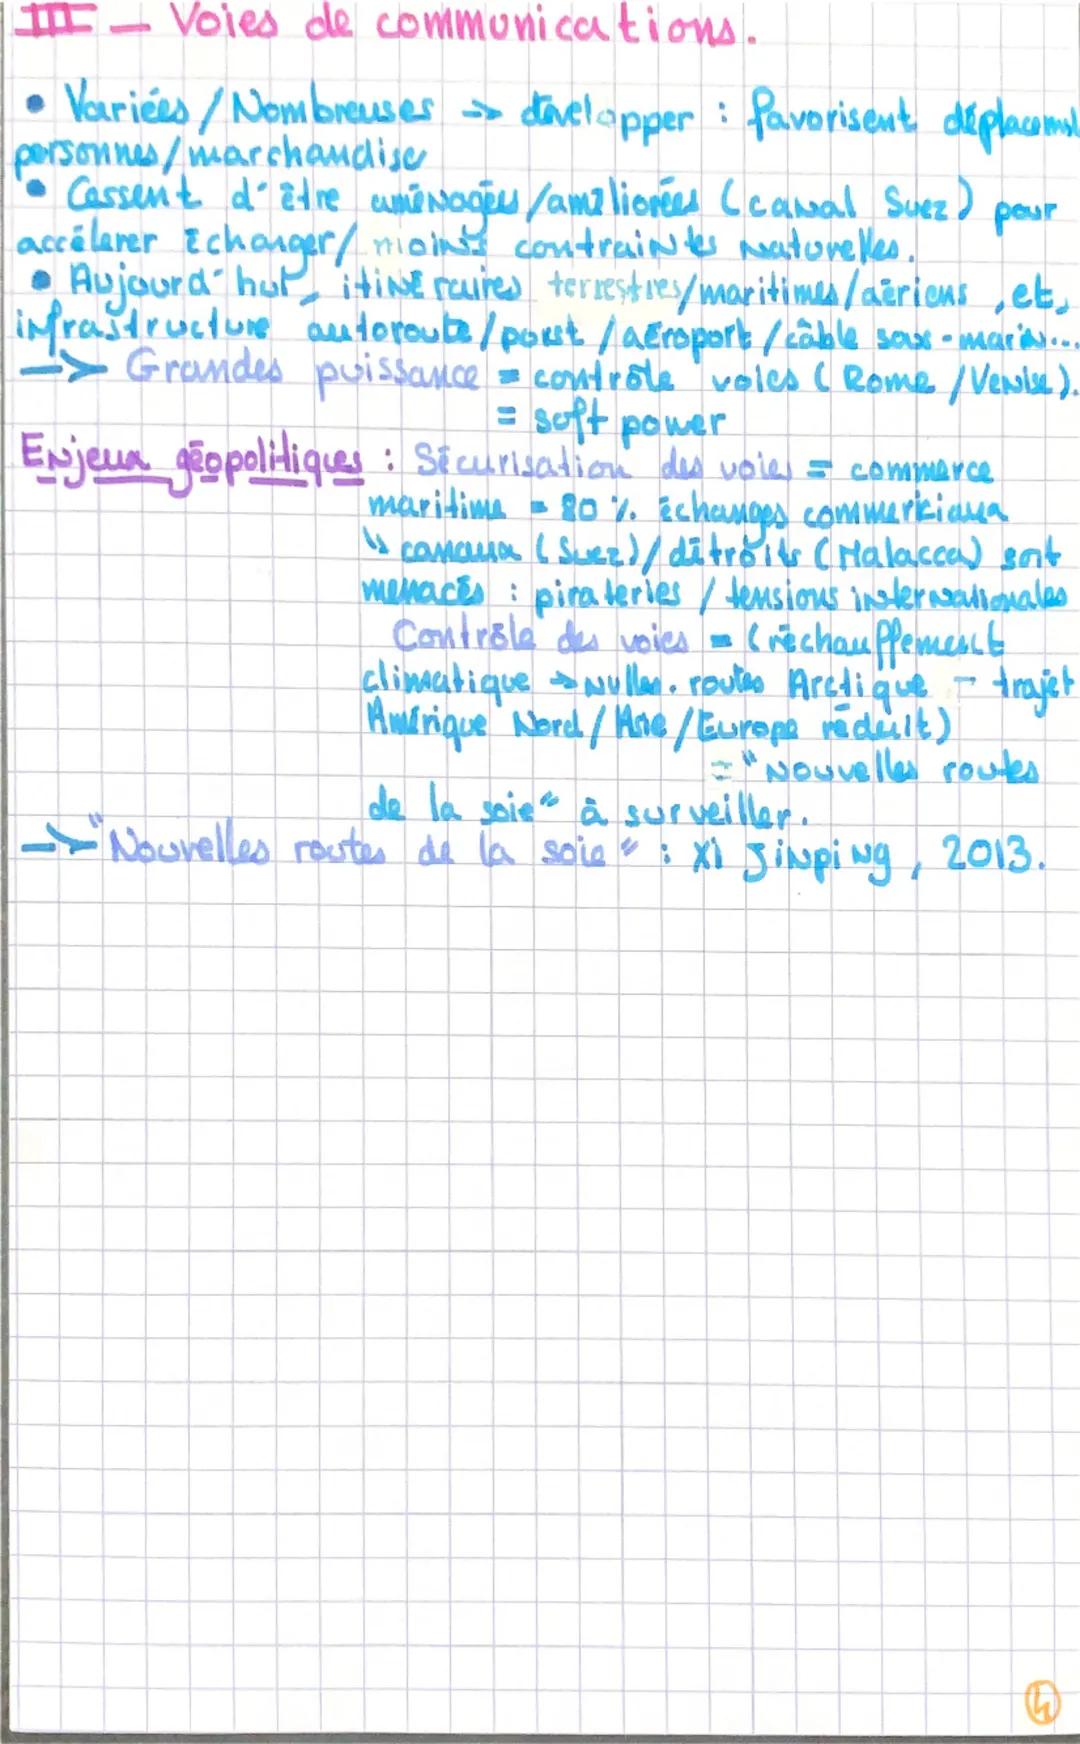 III - Voies de communications.
• Variées / Nombreuses -> développer : favorisent déplacemt
personnes/marchandise
• Cessent d'être aménagées/améliorées (canal Suez) pour
accélérer échanger/ moins contraintes naturelles.
• Aujourd'hui, itinéraires terrestres/maritimes/aériens, et,
infrastructure autoroute/port /aéroport/câble sous-marin...
-> Grandes puissance = contrôle voies (Rome /Venise).
= soft power
Enjeux géopolitiques : Sécurisation des voies = commerce
maritime = 80 % échanges commerciaux
↳ canaux (Suez)/détroits (Malacca) sont
menacés : pirateries / tensions internationales
Contrôle des voies = (réchauffement
climatique -> nvlles. routes Arctique - trajet
Amérique Nord/Asie/Europe réduit)
= "Nouvelles routes
de la soie" à surveiller.
-> "Nouvelles routes de la soie" : Xi Jinping, 2013.
4